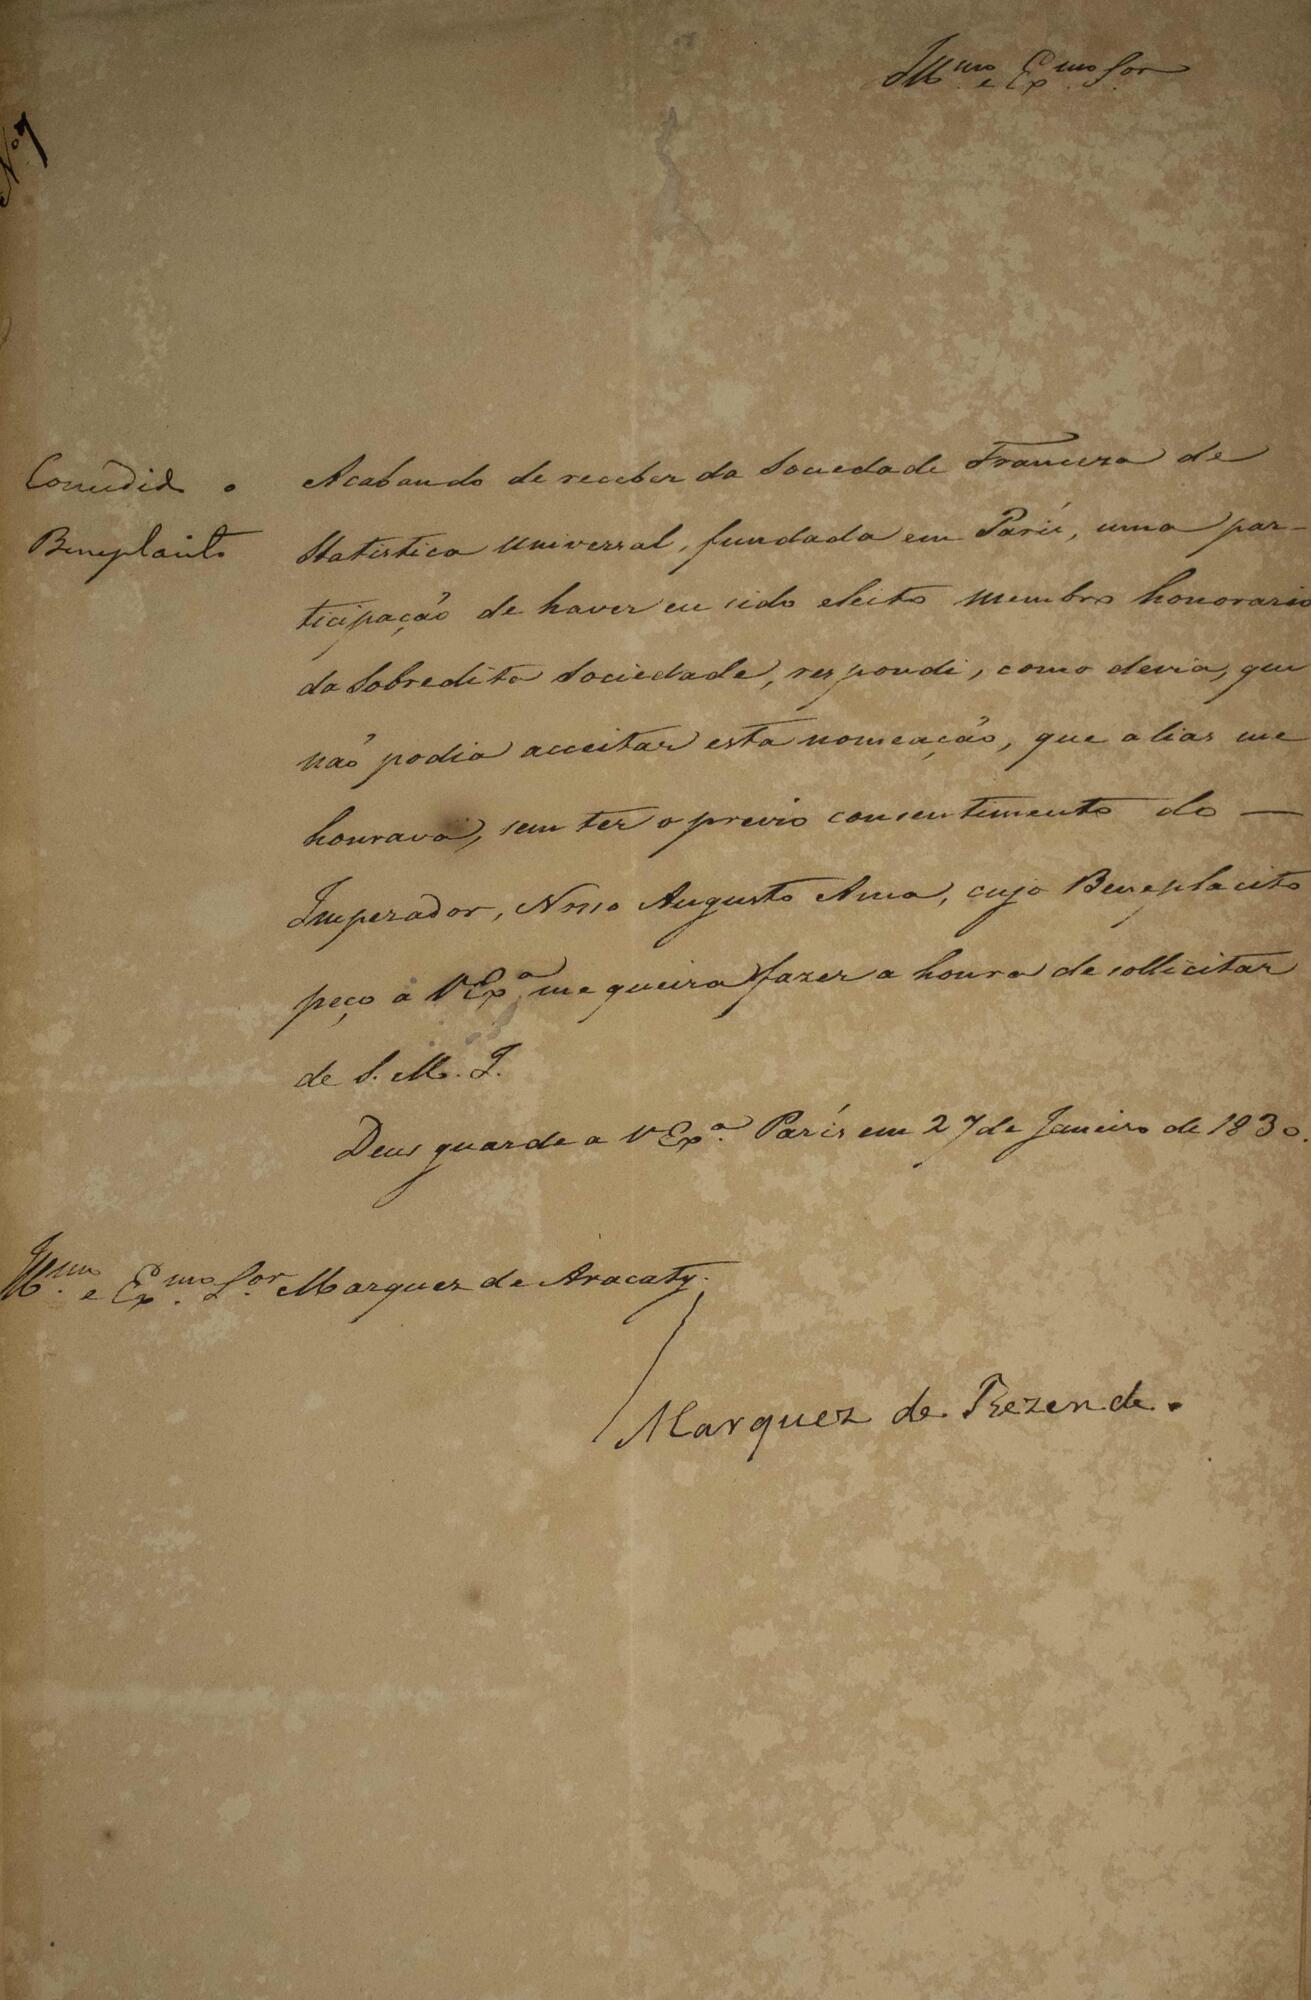 Illmo. e Exmo. Sor.
No 7
Concedido o
Beneplacito
Acabando de receber da Sociedade Franceza de
Statistica Universal, fundada em París, uma par-
ticipação de haver eu sido eleito membro honorario
da Sobredita Sociedade, respondi, como devia, que
não podia acceitar esta nomeação, que alias me
honrava, sem ter o previo consentimento do —
Imperador, Nosso Augusto Amo, cujo Beneplacito
peço a VExa. me queira fazer a honra de sollicitar
de S. M. I.
Deus guarde a VExa. París em 27 de Janeiro de 1830.
Illmo. e Exmo. Sor. Marquez de Aracaty.
Marquez de Rezende.